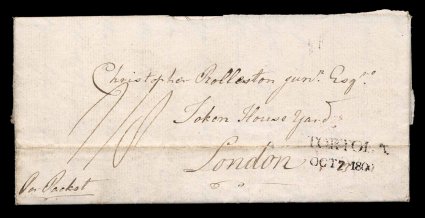 Christopher Rolleston junr. Esqre.
Token House Yard
London
TORTOLA
OCT 7 1800
Per Packet